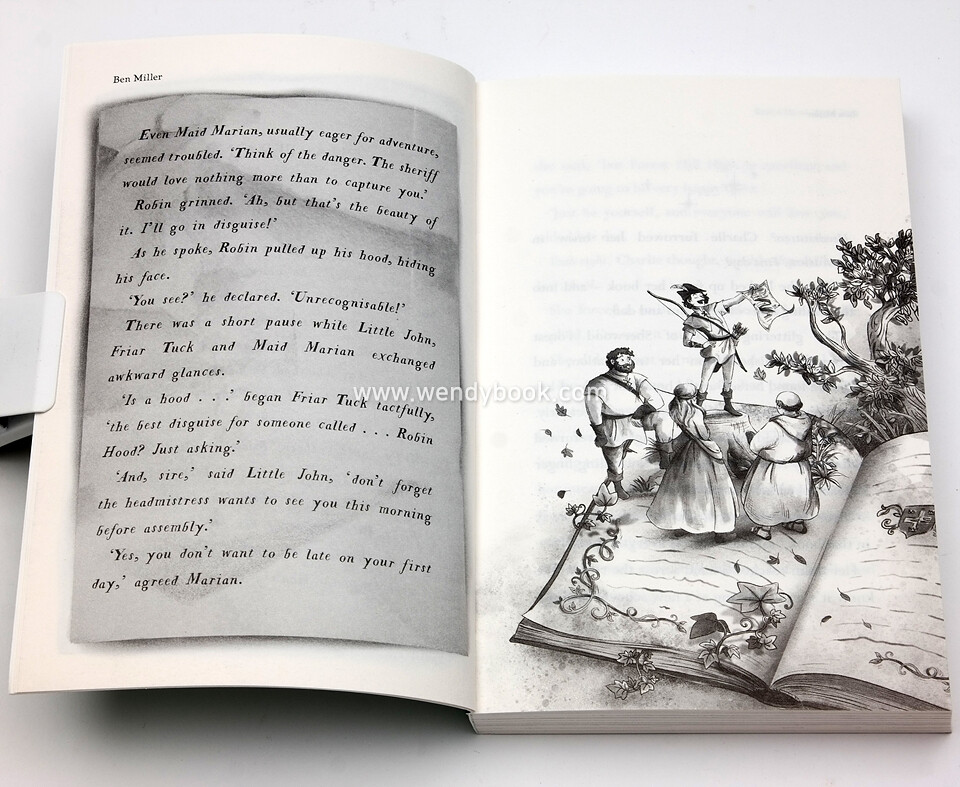 Ben Miller
Even Maid Marian, usually eager for adventure,
seemed troubled. ‘Think of the danger. The sheriff
would love nothing more than to capture you.’
Robin grinned. ‘Ah, but that’s the beauty of
it. I’ll go in disguise!’
As he spoke, Robin pulled up his hood, hiding
his face.
‘You see?’ he declared. ‘Unrecognisable!’
There was a short pause while Little John,
Friar Tuck and Maid Marian exchanged
awkward glances.
‘Is a hood . . .’ began Friar Tuck tactfully,
‘the best disguise for someone called . . . Robin
Hood? Just asking.’
‘And, sire,’ said Little John, ‘don’t forget
the headmistress wants to see you this morning
before assembly.’
‘Yes, you don’t want to be late on your first
day,’ agreed Marian.
www.wendybook.com